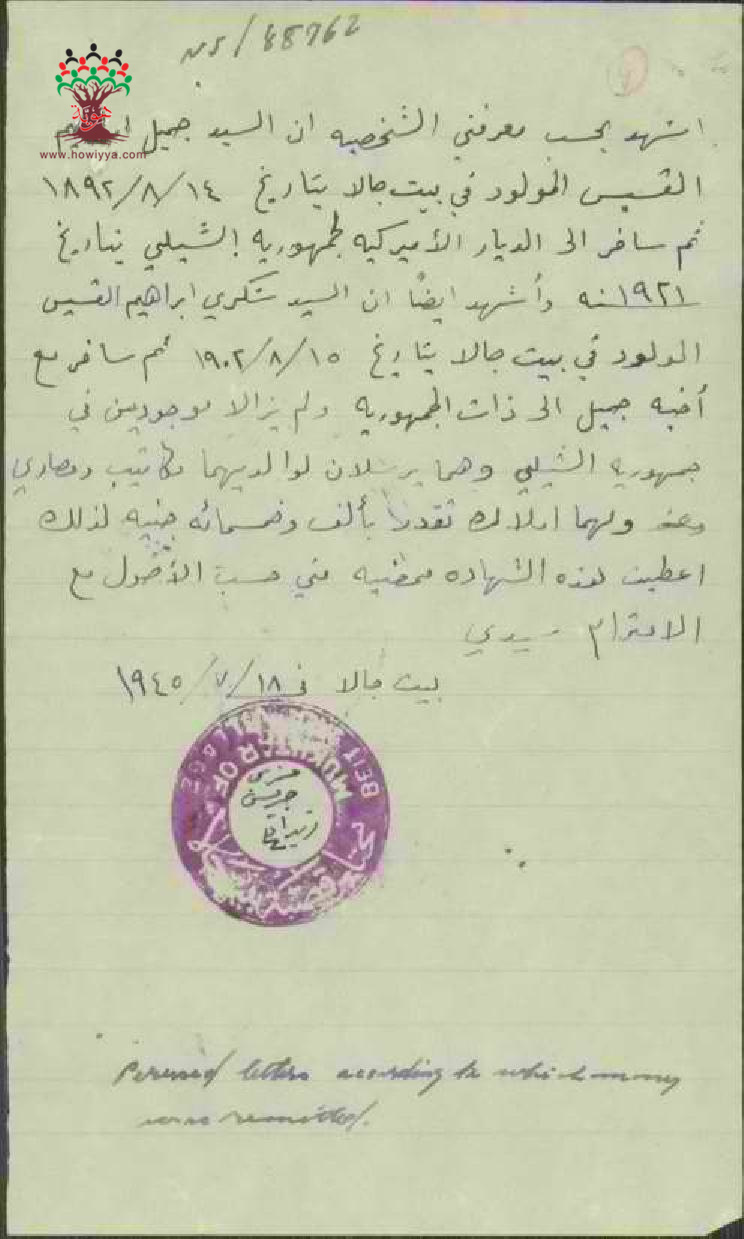 NS/88762
www.howiyya.com
اشهد بحسب معرفتي الشخصيه ان السيد جميل
القسيس المولود في بيت جالا بتاريخ ١٨٩٢/٨/١٤
ثم سافر الى الديار الأميركيه لجمهورية الشيلي بتاريخ
١٩٢١ سنه وأشهد ايضًا ان السيد شكري ابراهيم القسيس
المولود في بيت جالا بتاريخ ١٩٠٢/٨/١٥ ثم سافر مع
أخيه جميل الى ذات الجمهوريه ولم يزالا موجودين في
جمهورية الشيلي وهما يرسلان لوالديهما مكاتيب ومصاري
ولهما املاك تقدر بألف وخمسمائه جنيه لذلك
اعطيت هذه الشهاده ممضيه مني حسب الأصول مع
الاحترام سيدي
بيت جالا في ١٩٤٥/٧/١٨
MUKHTAR OF
BEIT
Perused letters according to which money
was remitted.